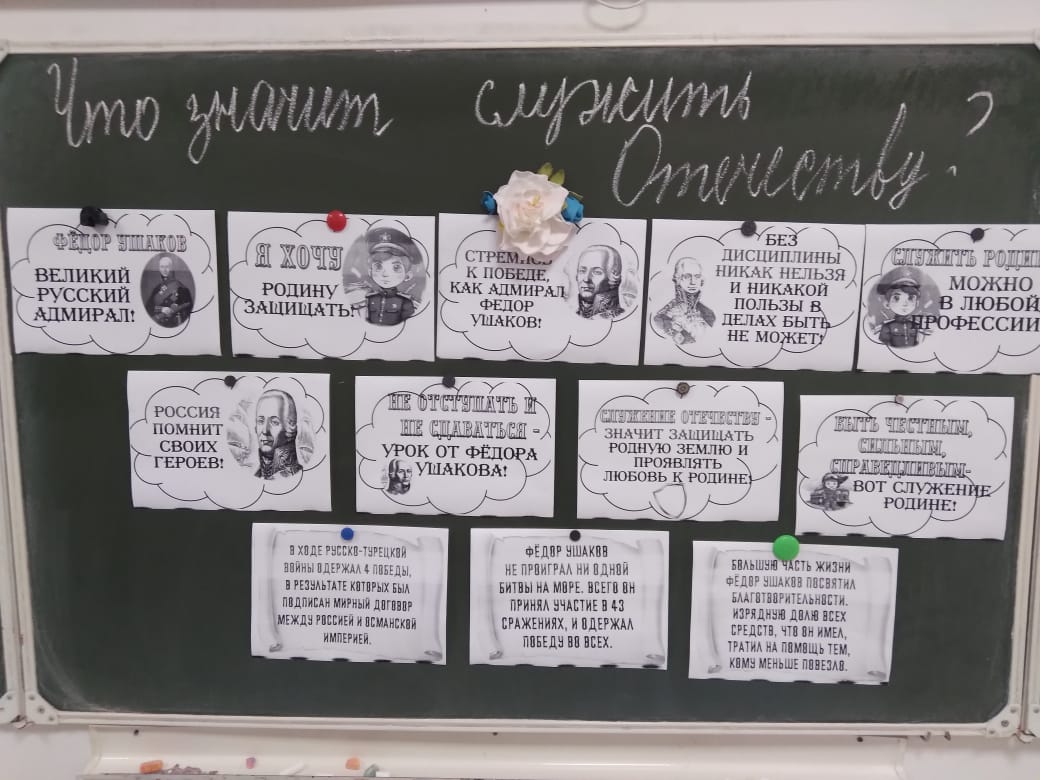 Что значит служить
Отечеству?
ФЁДОР УШАКОВ
ВЕЛИКИЙ
РУССКИЙ
АДМИРАЛ!
Я ХОЧУ
РОДИНУ
ЗАЩИЩАТЬ!
СТРЕМИСЬ
К ПОБЕДЕ,
КАК АДМИРАЛ
ФЕДОР
УШАКОВ!
БЕЗ
ДИСЦИПЛИНЫ
НИКАК НЕЛЬЗЯ
И НИКАКОЙ
ПОЛЬЗЫ В
ДЕЛАХ БЫТЬ
НЕ МОЖЕТ!
СЛУЖИТЬ РОДИН
МОЖНО
В ЛЮБОЙ
ПРОФЕССИИ
РОССИЯ
ПОМНИТ
СВОИХ
ГЕРОЕВ!
НЕ ОТСТУПАТЬ И
НЕ СДАВАТЬСЯ -
УРОК ОТ ФЁДОРА
УШАКОВА!
СЛУЖЕНИЕ ОТЕЧЕСТВУ -
ЗНАЧИТ ЗАЩИЩАТЬ
РОДНУЮ ЗЕМЛЮ И
ПРОЯВЛЯТЬ
ЛЮБОВЬ К РОДИНЕ!
БЫТЬ ЧЕСТНЫМ,
СИЛЬНЫМ,
СПРАВЕДЛИВЫМ-
ВОТ СЛУЖЕНИЕ
РОДИНЕ!
В ХОДЕ РУССКО-ТУРЕЦКОЙ
ВОЙНЫ ОДЕРЖАЛ 4 ПОБЕДЫ,
В РЕЗУЛЬТАТЕ КОТОРЫХ БЫЛ
ПОДПИСАН МИРНЫЙ ДОГОВОР
МЕЖДУ РОССИЕЙ И ОСМАНСКОЙ
ИМПЕРИЕЙ.
ФЁДОР УШАКОВ
НЕ ПРОИГРАЛ НИ ОДНОЙ
БИТВЫ НА МОРЕ. ВСЕГО ОН
ПРИНЯЛ УЧАСТИЕ В 43
СРАЖЕНИЯХ, И ОДЕРЖАЛ
ПОБЕДУ ВО ВСЕХ.
БОЛЬШУЮ ЧАСТЬ ЖИЗНИ
ФЁДОР УШАКОВ ПОСВЯТИЛ
БЛАГОТВОРИТЕЛЬНОСТИ.
ИЗРЯДНУЮ ДОЛЮ ВСЕХ
СРЕДСТВ, ЧТО ОН ИМЕЛ,
ТРАТИЛ НА ПОМОЩЬ ТЕМ,
КОМУ МЕНЬШЕ ПОВЕЗЛО.